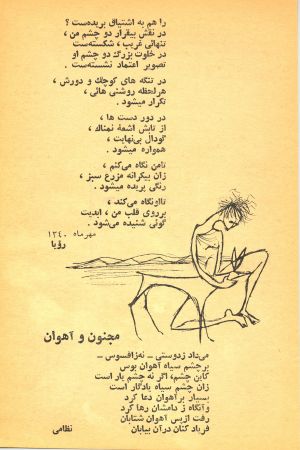 را هم به اشتیاق بریده‌ست ؟
در نقش بیقرار دو چشم من ،
تنهائی غریب ، شکسته‌ست
در خلوت بزرگ دو چشم او
تصویر اعتماد نشسته‌ست .
در تنگه های کوچک و دورش ،
هر لحظه روشنی هائی ،
تکرار میشود .
در دور دست ها ،
از تابش اشعهٔ نمناک ،
گودال بی‌نهایت ،
همواره میشود .
تامن نگاه می‌کنم ،
زان بیکرانه مزرع سبز ،
رنگی بریده میشود .
تااونگاه می‌کند ،
برروی قلب من ، ابدیت
گوئی شنیده می‌شود .
مهرماه ۱۳۴۰
رؤیا
مجنون و آهوان
می‌داد زدوستی ــ نه‌زافسوس ــ
برچشم سیاه آهوان بوس
کاین چشم، اگر نه چشم یار است
زان چشم سیاه یادگار است
بسیار برآهوان دعا کرد
وآنگاه ز دامشان رها کرد
رفت ازپس آهوان شتابان
فریاد کنان درآن بیابان
نظامی